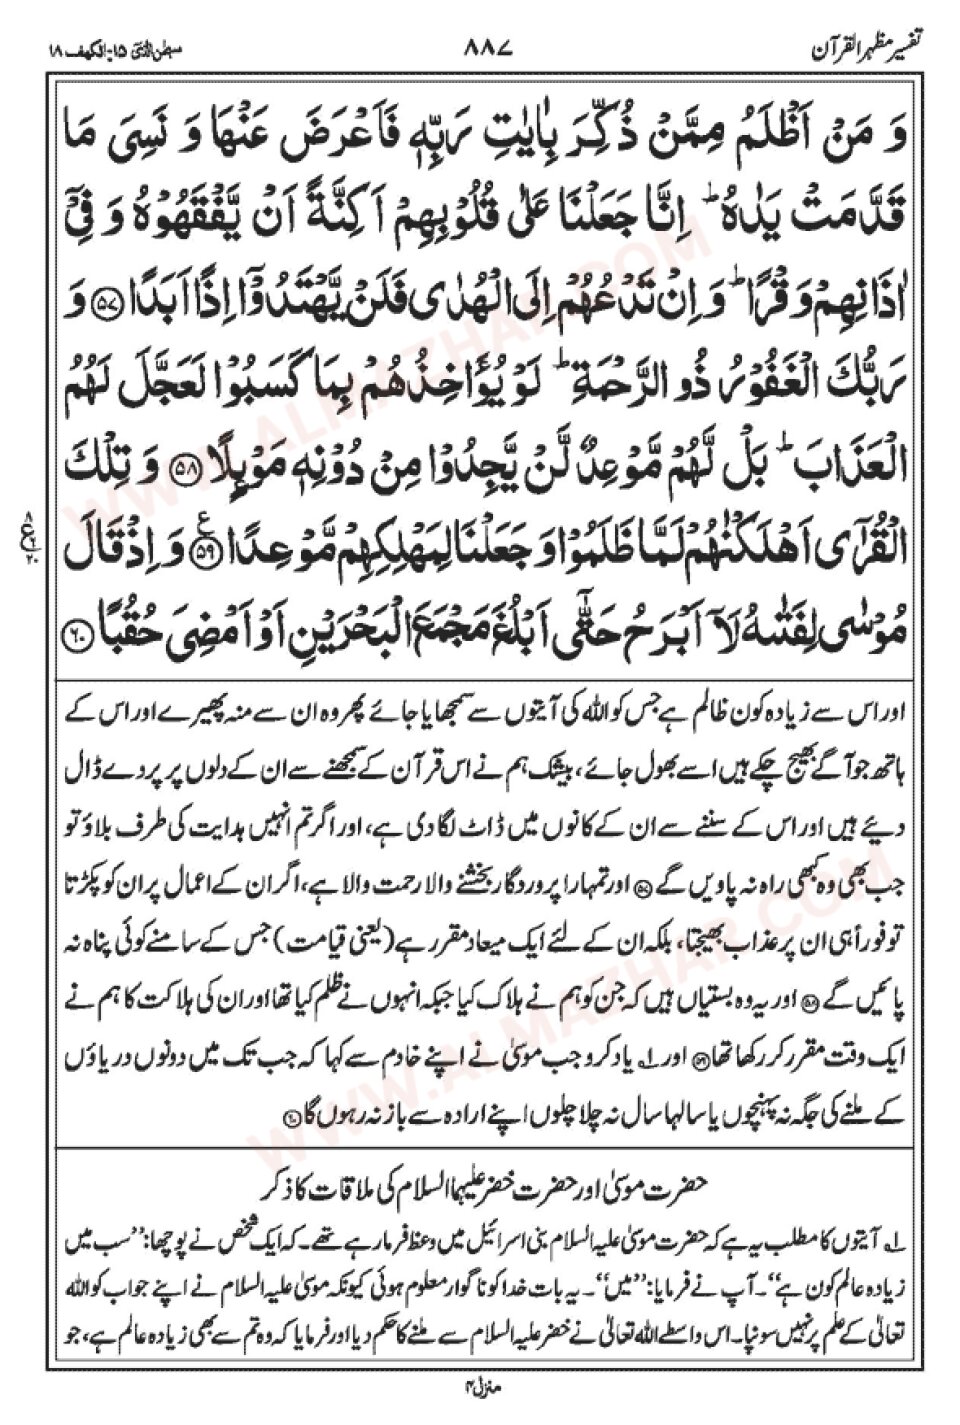 تفسیر مظہر القرآن ۸۸۷ سبحٰن الذی ۱۵-الکہف ۱۸
وَ مَنْ اَظْلَمُ مِمَّنْ ذُكِّرَ بِاٰیٰتِ رَبِّهٖ فَاَعْرَضَ عَنْهَا وَ نَسِیَ مَا
قَدَّمَتْ یَدٰهُ ؕ اِنَّا جَعَلْنَا عَلٰی قُلُوْبِهِمْ اَكِنَّةً اَنْ یَّفْقَهُوْهُ وَ فِیْۤ
اٰذَانِهِمْ وَقْرًا ؕ وَ اِنْ تَدْعُهُمْ اِلَی الْهُدٰی فَلَنْ یَّهْتَدُوْۤا اِذًا اَبَدًا ﴿۵۷﴾ وَ
رَبُّكَ الْغَفُوْرُ ذُو الرَّحْمَةِ ؕ لَوْ یُؤَاخِذُهُمْ بِمَا كَسَبُوْا لَعَجَّلَ لَهُمُ
الْعَذَابَ ؕ بَلْ لَّهُمْ مَّوْعِدٌ لَّنْ یَّجِدُوْا مِنْ دُوْنِهٖ مَوْىِٕلًا ﴿۵۸﴾ وَ تِلْكَ
الْقُرٰۤی اَهْلَكْنٰهُمْ لَمَّا ظَلَمُوْا وَ جَعَلْنَا لِمَهْلِكِهِمْ مَّوْعِدًا ﴿۵۹﴾ ع وَ اِذْ قَالَ
مُوْسٰی لِفَتٰىهُ لَاۤ اَبْرَحُ حَتّٰۤی اَبْلُغَ مَجْمَعَ الْبَحْرَیْنِ اَوْ اَمْضِیَ حُقُبًا ﴿۶۰﴾
اور اس سے زیادہ کون ظالم ہے جس کو اللہ کی آیتوں سے سمجھایا جائے پھر وہ ان سے منہ پھیرے اور اس کے
ہاتھ جو آگے بھیج چکے ہیں اسے بھول جائے، بیشک ہم نے اس قرآن کے سمجھنے سے ان کے دلوں پر پردے ڈال
دیئے ہیں اور اس کے سننے سے ان کے کانوں میں ڈاٹ لگا دی ہے، اور اگر تم انہیں ہدایت کی طرف بلاؤ تو
جب بھی وہ کبھی راہ نہ پاویں گے ﴿۵۷﴾ اور تمہارا پروردگار بخشنے والا رحمت والا ہے، اگر ان کے اعمال پر ان کو پکڑتا
تو فوراً ہی ان پر عذاب بھیجتا، بلکہ ان کے لئے ایک میعاد مقرر ہے (یعنی قیامت) جس کے سامنے کوئی پناہ نہ
پائیں گے ﴿۵۸﴾ اور یہ وہ بستیاں ہیں کہ جن کو ہم نے ہلاک کیا جبکہ انہوں نے ظلم کیا تھا اور ان کی ہلاکت کا ہم نے
ایک وقت مقرر کر رکھا تھا ﴿۵۹﴾ اور ۱؎ یاد کرو جب موسیٰ نے اپنے خادم سے کہا کہ جب تک میں دونوں دریاؤں
کے ملنے کی جگہ نہ پہنچوں یا سالہا سال نہ چلا چلوں اپنے ارادہ سے باز نہ رہوں گا ﴿۶۰﴾
حضرت موسیٰ اور حضرت خضر علیہما السلام کی ملاقات کا ذکر
۱؎ آیتوں کا مطلب یہ ہے کہ حضرت موسیٰ علیہ السلام بنی اسرائیل میں وعظ فرما رہے تھے۔ کہ ایک شخص نے پوچھا: ’’سب میں
زیادہ عالم کون ہے‘‘۔ آپ نے فرمایا: ’’میں‘‘۔ یہ بات خدا کو ناگوار معلوم ہوئی کیونکہ موسیٰ علیہ السلام نے اپنے جواب کو اللہ
تعالیٰ کے علم پر نہیں سونپا۔ اس واسطے اللہ تعالیٰ نے خضر علیہ السلام سے ملنے کا حکم دیا اور فرمایا کہ وہ تم سے بھی زیادہ عالم ہے، جو
منزل ۴
WWW.ALMAZHAR.COM
WWW.ALMAZHAR.COM